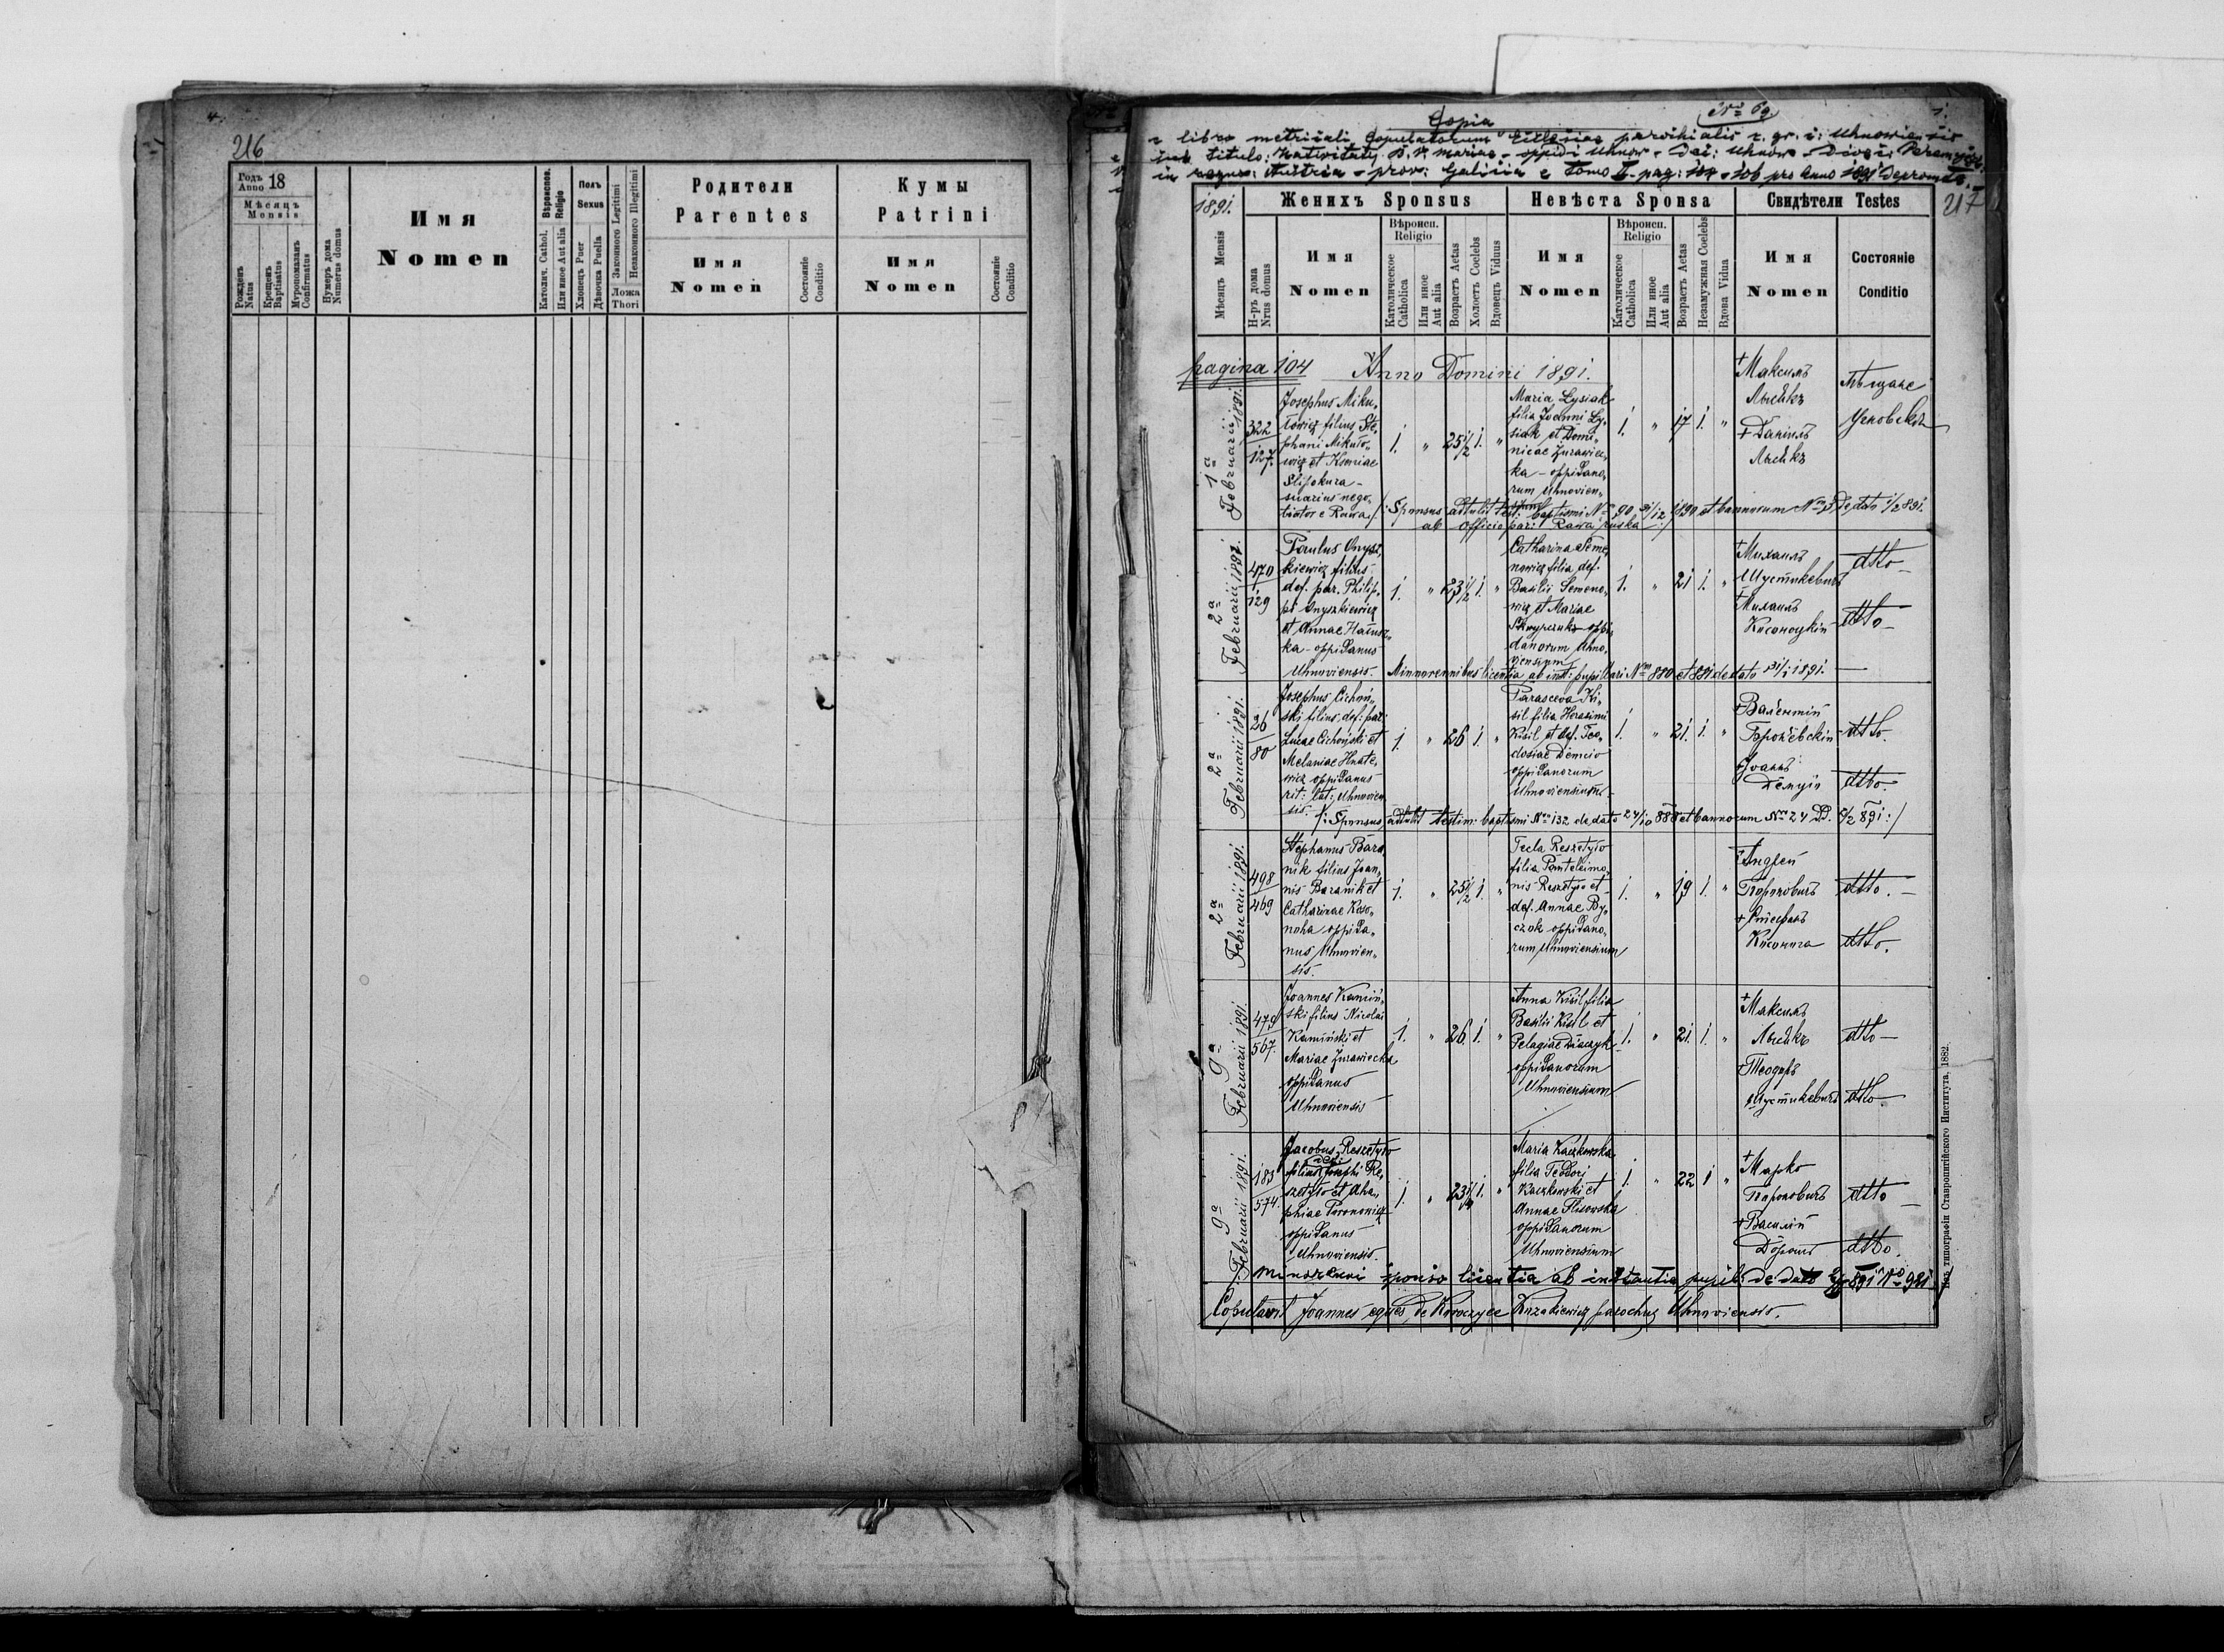 4.
216
Годъ Anno 18
Мѣсяцъ Mensis
Рожденъ Natus
Крещенъ Baptisatus
Мѵропомазанъ Confirmatus
Нумеръ дома Numerus domus
Имя
Nomen
Вѣроиспов. Religio
Католич. Cathol.
Или иное Aut alia
Полъ Sexus
Хлопецъ Puer
Дѣвочка Puella
Законного Legitimi
Незаконного Illegitimi
Ложа Thori
Родители
Parentes
Имя
Nomen
Состояніе Conditio
Кумы
Patrini
Имя
Nomen
Состояніе Conditio
Copia
№ 69.
1.
e libro metricali Copulatorum Ecclesiae parochialis r. gr. c: Uhnoviensis
sub titulo: Nativitatis B. V. Mariae - oppidi Uhnow - Dec: Uhnow - Dioec:
in regno: Austria - prov: Galicia e Tomo pag: 104 - 106 pro Anno 1891
217
1891.
Женихъ Sponsus
Невѣста Sponsa
Свидѣтели Testes
Мѣсяцъ Mensis
Н-ръ дома Nrus domus
Имя
Nomen
Вѣроисп. Religio
Католическое Catholica
Или иное Aut alia
Возрастъ Aetas
Холостъ Coelebs
Вдовецъ Viduus
Имя
Nomen
Вѣроисп. Religio
Католическое Catholica
Или иное Aut alia
Возрастъ Aetas
Незамужная Coelebs
Вдова Vidua
Имя
Nomen
Состояніе
Conditio
pagina 104 Anno Domini 1891.
1a Februarii 1891.
322
127.
Josephus Miku-
łowicz filius Ste-
phani Mikuło-
wicz et Xeniae
Slipokura -
suarius nego-
tiator e Rawa
1. " 25 1/2 1. "
Maria Lysiak
filia Joanni Ly-
siak et Domi-
nicae Zurawiec-
ka - oppidano-
rum Uhnovien-
sium
1. " 17 1. "
+Максимъ
Лысѣкъ
+Даніилъ
Лысѣкъ
Мѣщане
Угновскіи
/: Sponsus attulit test: baptismi No 90 31/12 890 et bannorum No 3 de dato 1/2 891.
ab officio par: Rawa ruska :/
2a Februarii 1891.
470
129
Paulus Onysz-
kiewicz filius
def. par. Philip-
pi Onyszkiewicz
et Annae
ka - oppidanus
Uhnoviensis.
1. " 23 1/2 1. "
Catharina Seme-
nowicz filia def.
Basilii Semeno-
wicz et Mariae
Skrypczuk oppi-
danorum Uhno-
viensium
1. " 21 1. "
+Михаилъ
Шустикевичъ
+Михаилъ
dtto
dtto
Minorennibus licentia ab inst: pupillari No 880 et 881 de dato 31/1 1891.
2a Februarii 1891.
26
80
Josephus Cichoń-
ski filius def: par:
Lucae Cichoński et
Melaniae Hnate-
wicz oppidanus
rit: lat: Uhnovien-
sis.
1. " 26 1. "
Parasceva Ki-
sil filia Herasimi
Kisil et def. Teo-
dosiae Demcio
oppidanorum
Uhnoviensium
1. " 21. 1. "
+Валентій
+Іоаннъ
Демчій
dtto.
dtto.
/: Sponsus attulit testim: baptismi No 132 de dato 24/10 888 et bannorum No 24 DD. 2/2 891 :/
2a Februarii 1891.
498
469
Stephanus Bara-
nik filius Joan-
nis Baranik et
Catharinae Koso-
noha oppida-
nus Uhnovien-
sis.
1. " 25 1/2 1. "
Tecla Reszetyło
filia Panteleimo-
nis Reszetyło et
def. Annae By-
czok oppidano-
rum Uhnoviensium
1. " 19 1. "
+Андрей
Пороховичъ
+Стефанъ
Косонога
dtto.
dtto.
9a Februarii 1891.
479
567.
Joannes Kamiń-
ski filius Nicolai
Kamiński et
Mariae Zurawiecka
oppidanus
Uhnoviensis
1. " 26. 1. "
Anna Kisil filia
Basilii Kisil et
Pelagiae
oppidanorum
Uhnoviensium
1. " 21. 1. "
+Максимъ
Лысѣкъ
+Теодоръ
Шустикевичъ
dtto
dtto
9a Februarii 1891.
183
574.
Jacobus Reszetyło
filius def: Josephi Re-
szetyło et Aha-
phiae Poronowicz
oppidanus
Uhnoviensis.
1. " 23 1. "
Maria Kaczkowska
filia Teodori
Kaczkowski et
Annae Slisowska
oppidanorum
Uhnoviensium
1. " 22 1 "
+Марко
+Василій
Дорошъ
dtto
dtto.
Minorenni sponso licentia ab instantia pupil: de dato 891 No 921
Copulavit Joannes eques de Koroczyce Kozakiewicz parochus Uhnoviensis.
Изъ типографіи Ставропигійского Института, 1882.